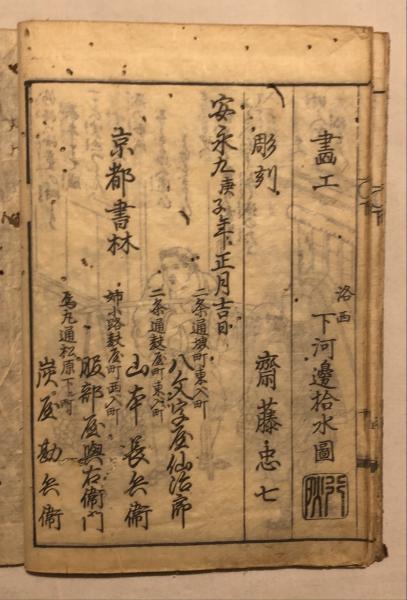 畵工
洛西
下河邊拾水圖
彫刻
齋藤忠七
安永九庚子年正月吉日
京都書林
二条通堺町東入町
八文字屋仙治郎
二条通麩屋町東入町
山本長兵衛
姉小路麩屋町西入町
服部屋與右衛門
烏丸通松原下ル町
炭屋勘兵衛